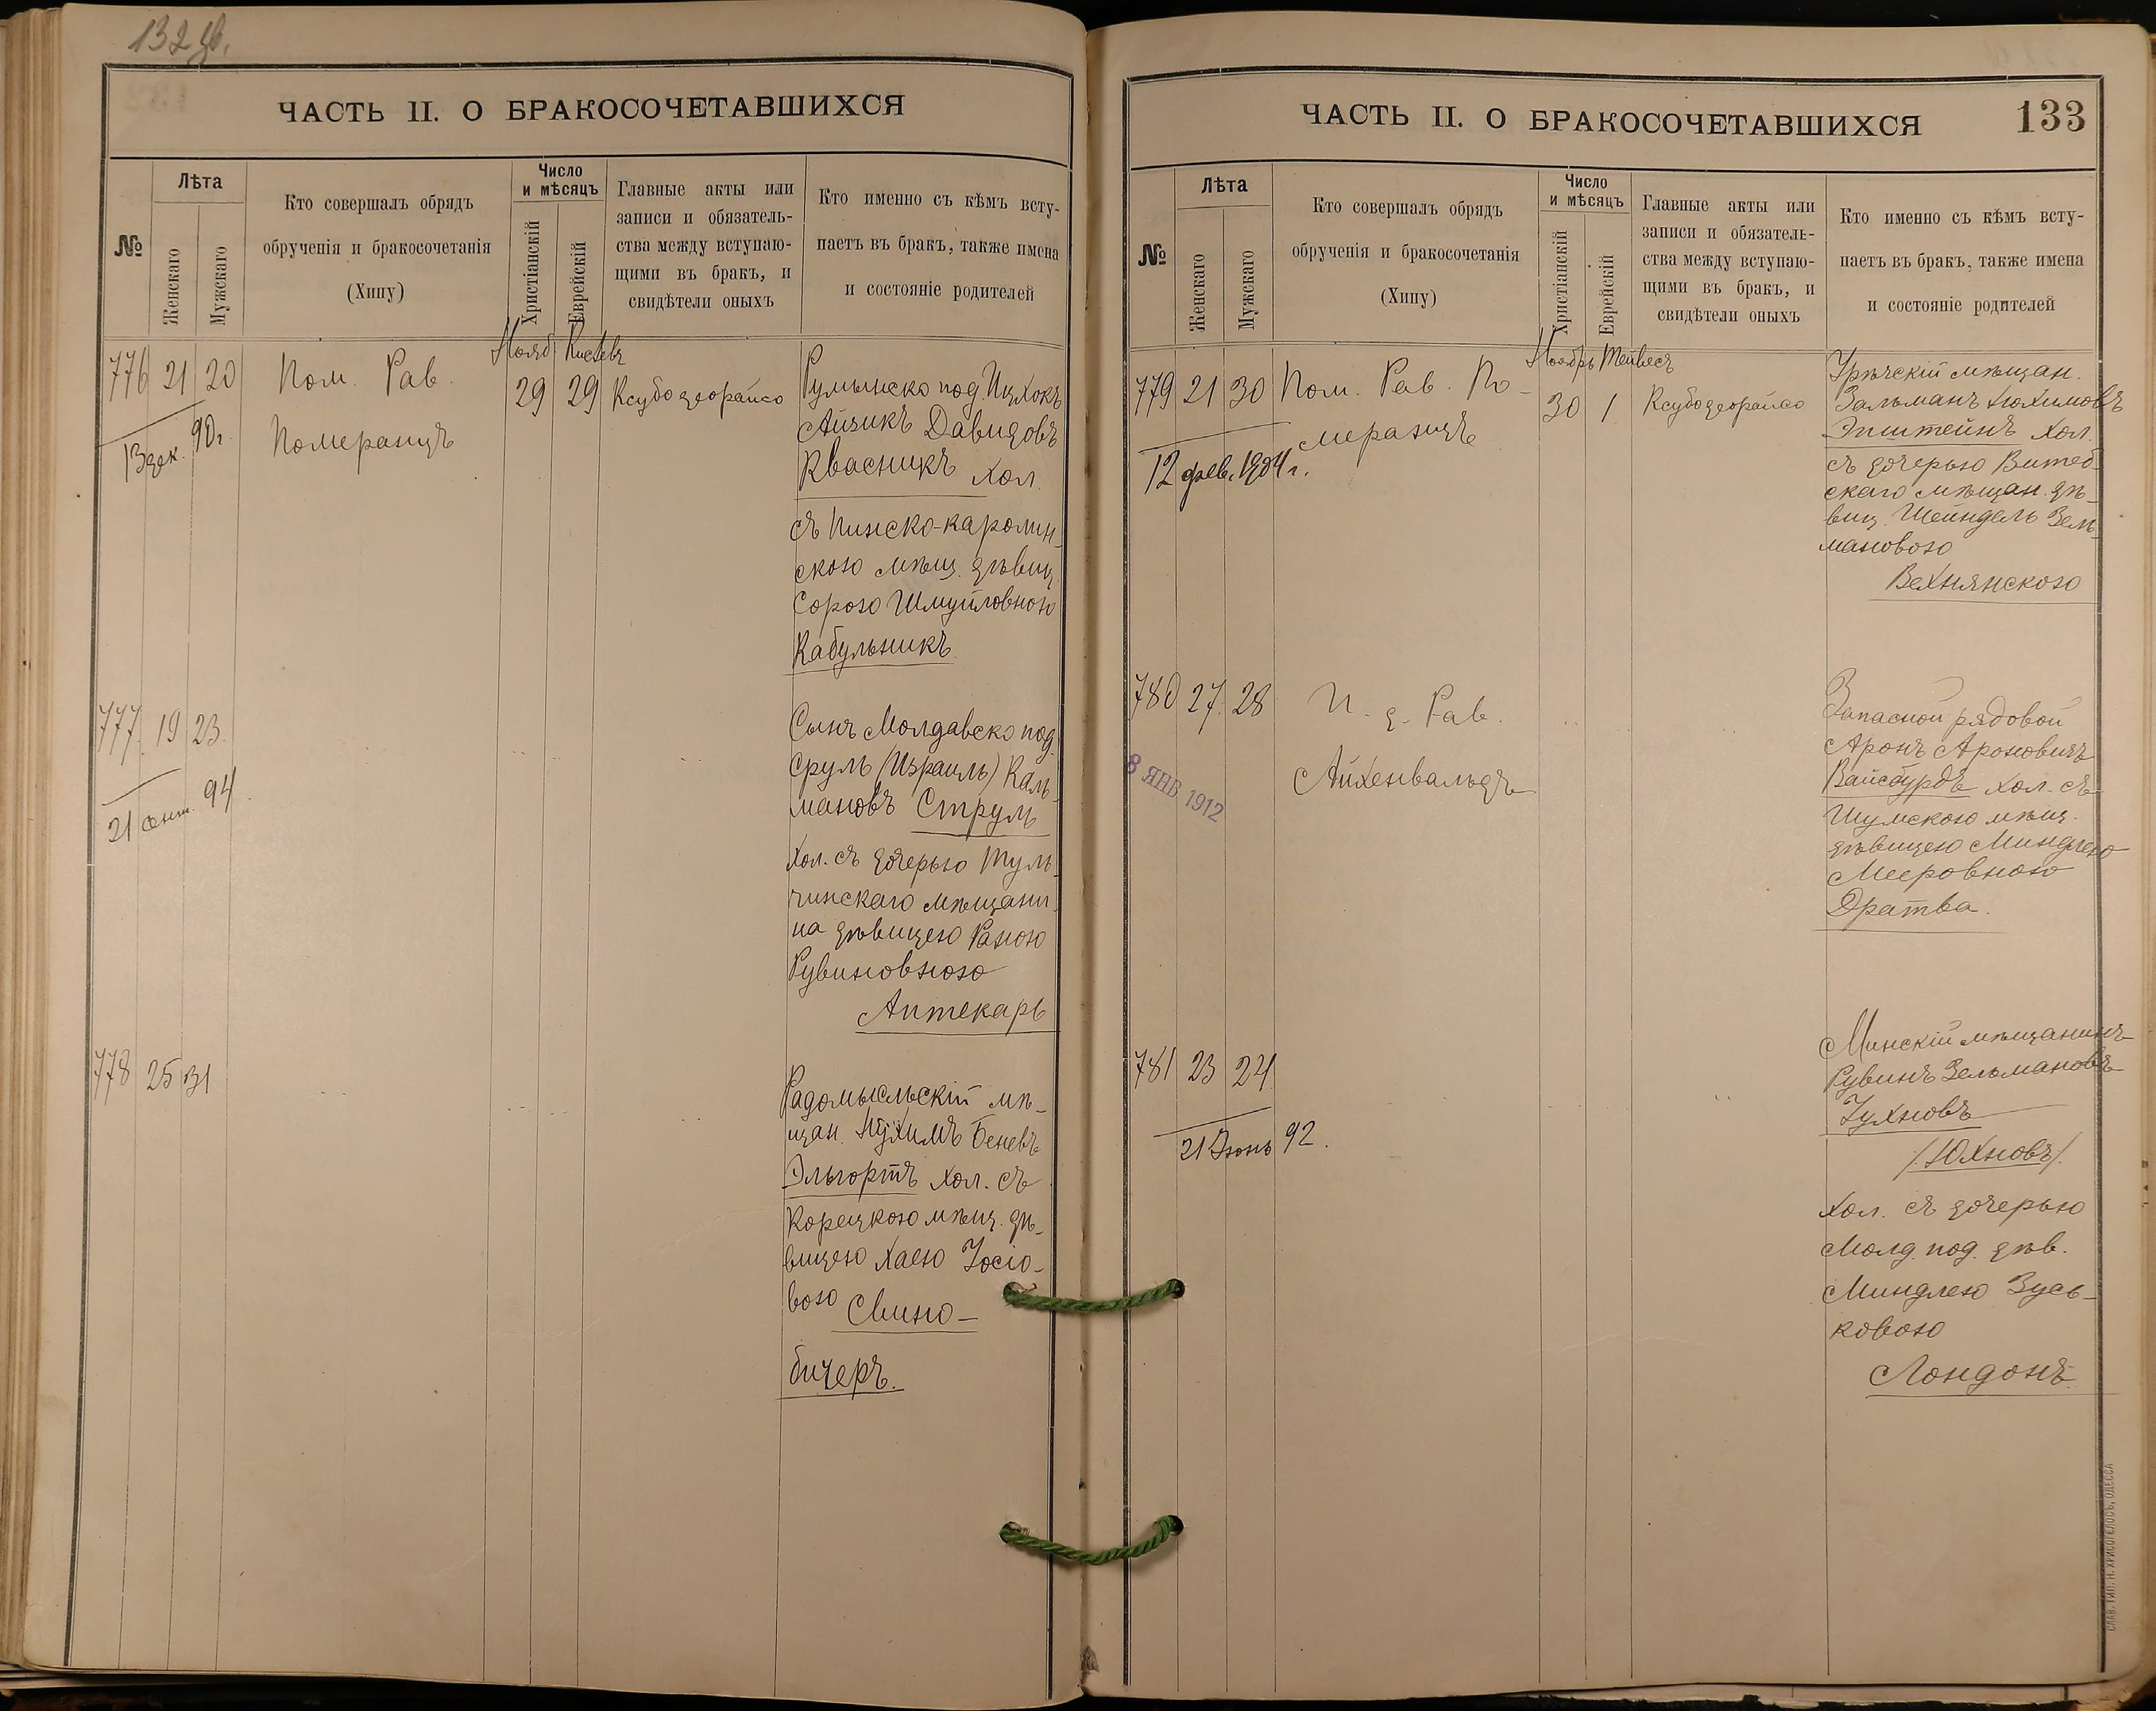 132 об.
ЧАСТЬ II. О БРАКОСОЧЕТАВШИХСЯ
№
Лѣта
Женскаго
Мужскаго
Кто совершалъ обрядъ
обрученія и бракосочетанія
(Хипу)
Число
и мѣсяцъ
Христіанскій
Еврейскій
Главные акты или
записи и обязатель-
ства между вступаю-
щими въ бракъ, и
свидѣтели оныхъ
Кто именно съ кѣмъ всту-
паетъ въ бракъ, также имена
и состояніе родителей
776 21 20
13 дек. 90 г.
Пом. Рав.
Померанцъ
Нояб Кислевъ
29 29
Ксубо деорайсо
Румынско под. Ицхокъ
Айзикъ Давидовъ
Квасникъ хол.
съ Пинско-каролин-
скою мѣщ. дѣвиц.
Сорою Шмуйловною
Кабульникъ
777 19 23
21 сент. 94
Сынъ Молдавско под.
Сруль (Израиль) Каль-
мановъ Струль
хол. съ дочерью Туль-
чинскаго мѣщани-
на дѣвицею Раною
Рувиновною
Аптекарь
778 25 31
Радомысльскій мѣ-
щан. Нухимъ Беневъ
Эльгортъ хол. съ
Корецкою мѣщ. дѣ-
вицею Хаею Іосіо-
вою Свино-
бичеръ.
ЧАСТЬ II. О БРАКОСОЧЕТАВШИХСЯ
133
№
Лѣта
Женскаго
Мужскаго
Кто совершалъ обрядъ
обрученія и бракосочетанія
(Хипу)
Число
и мѣсяцъ
Христіанскій
Еврейскій
Главные акты или
записи и обязатель-
ства между вступаю-
щими въ бракъ, и
свидѣтели оныхъ
Кто именно съ кѣмъ всту-
паетъ въ бракъ, также имена
и состояніе родителей
779 21 30
12 фев. 1904 г.
Пом. Рав. По-
меранцъ
Ноябрь Тейвесъ
30 1
Ксубо деорайсо
Урѣчскій мѣщан.
Зальманъ Хюхимовъ
Эпштейнъ хол.
съ дочерью Витеб-
скаго мѣщан. дѣ-
виц. Шейндель Зель-
мановою
Вехнянскою
780 27 28
8 ЯНВ 1912
И. д. Рав.
Айхенвальдъ
Запасной рядовой
Аронъ Ароновичъ
Вайсбурдъ хол. съ
Шумскою мѣщ.
дѣвицею Миндлею
Мееровною
Дратва.
781 23 24
21 Іюнь 92.
Минскій мѣщанинъ
Рувинъ Зельмановъ
Іухновъ
(Юхновъ)
хол. съ дочерью
Молд. под. дѣв.
Миндлею Зусь-
ковою
Лондонъ
СЛАВ. ТИП. Н. ХРИСОГЕЛОСЪ, ОДЕССА